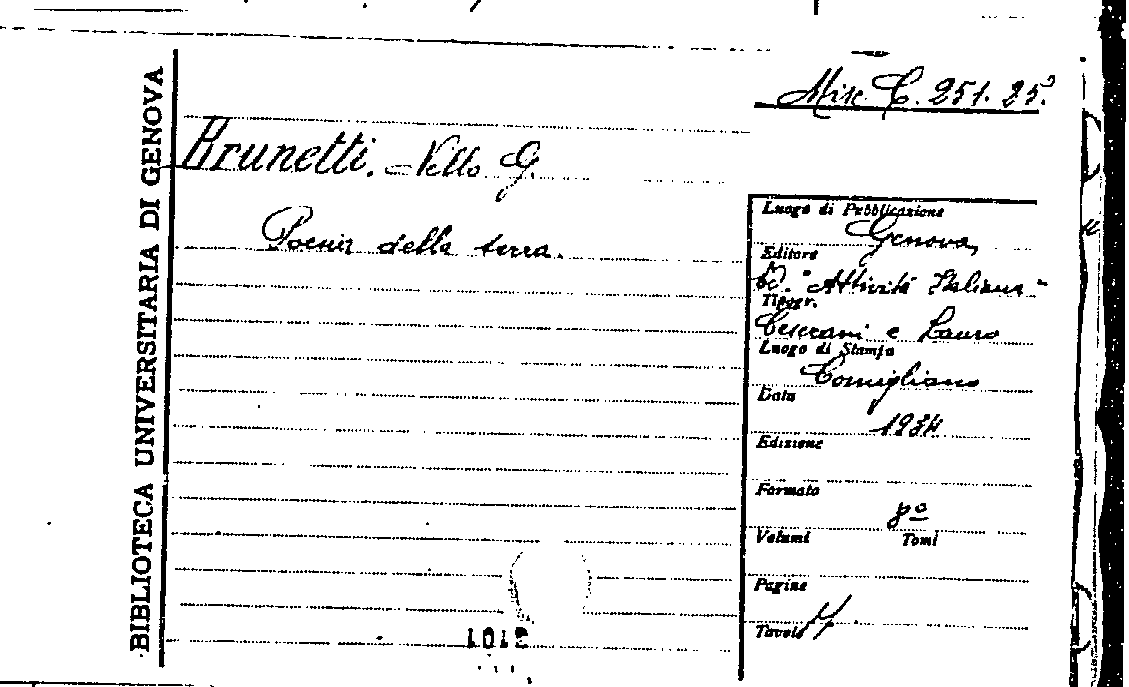 Misc. C. 251. 25.
BIBLIOTECA UNIVERSITARIA DI GENOVA
Brunetti. Nello G.
Poemi della terra.
Luogo di Pubblicazione
Genova,
Editore
Ed. "Attività Italiana"
Tipogr.
Ceserani e Lauro
Luogo di Stampa
Cornigliano
Data
1934
Edizione
Formato
8º
Volumi Tomi
Pagine
Tavole